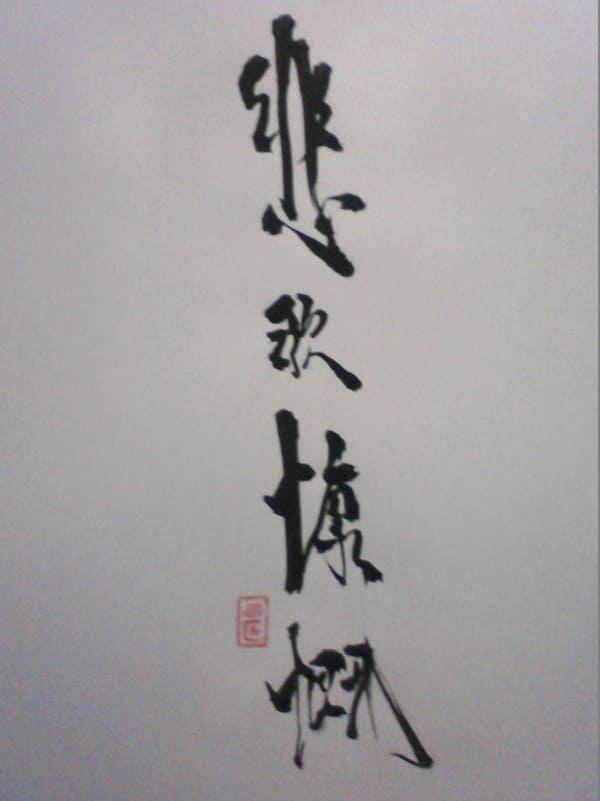 悲歌慷慨